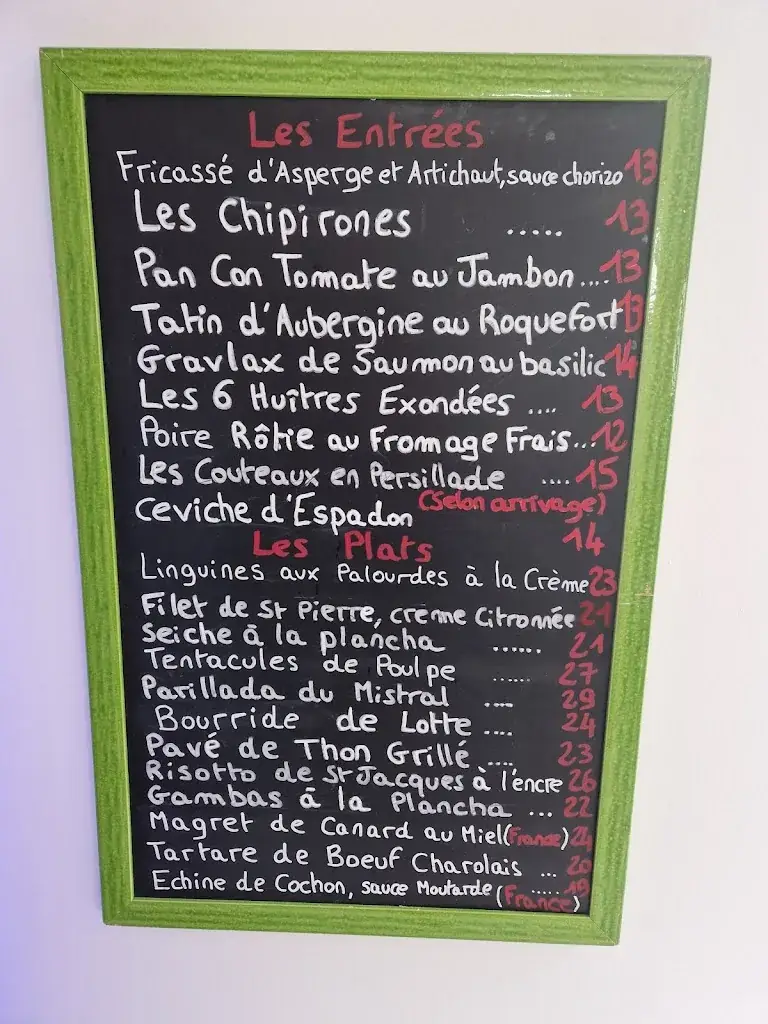 Les Entrées
Fricassé d'Asperge et Artichaut, sauce chorizo 13
Les Chipirones ..... 13
Pan Con Tomate au Jambon.... 13
Tatin d'Aubergine au Roquefort 13
Gravlax de Saumon au basilic 14
Les 6 Huîtres Exondées .... 13
Poire Rôtie au Fromage Frais... 12
Les Couteaux en Persillade .... 15
ceviche d'Espadon (Selon arrivage) 14
Les Plats
Linguines aux Palourdes à la Crème 23
Filet de St Pierre, creme Citronnée 21
Seiche à la plancha ...... 21
Tentacules de Poulpe ..... 27
Parillada du Mistral .... 29
Bourride de Lotte .... 24
Pavé de Thon Grillé .... 23
Risotto de St Jacques à l'encre 26
Gambas à la Plancha ... 22
Magret de Canard au Miel (France) 24
Tartare de Boeuf Charolais ... 20
Echine de Cochon, sauce Moutarde (France) ..... 19